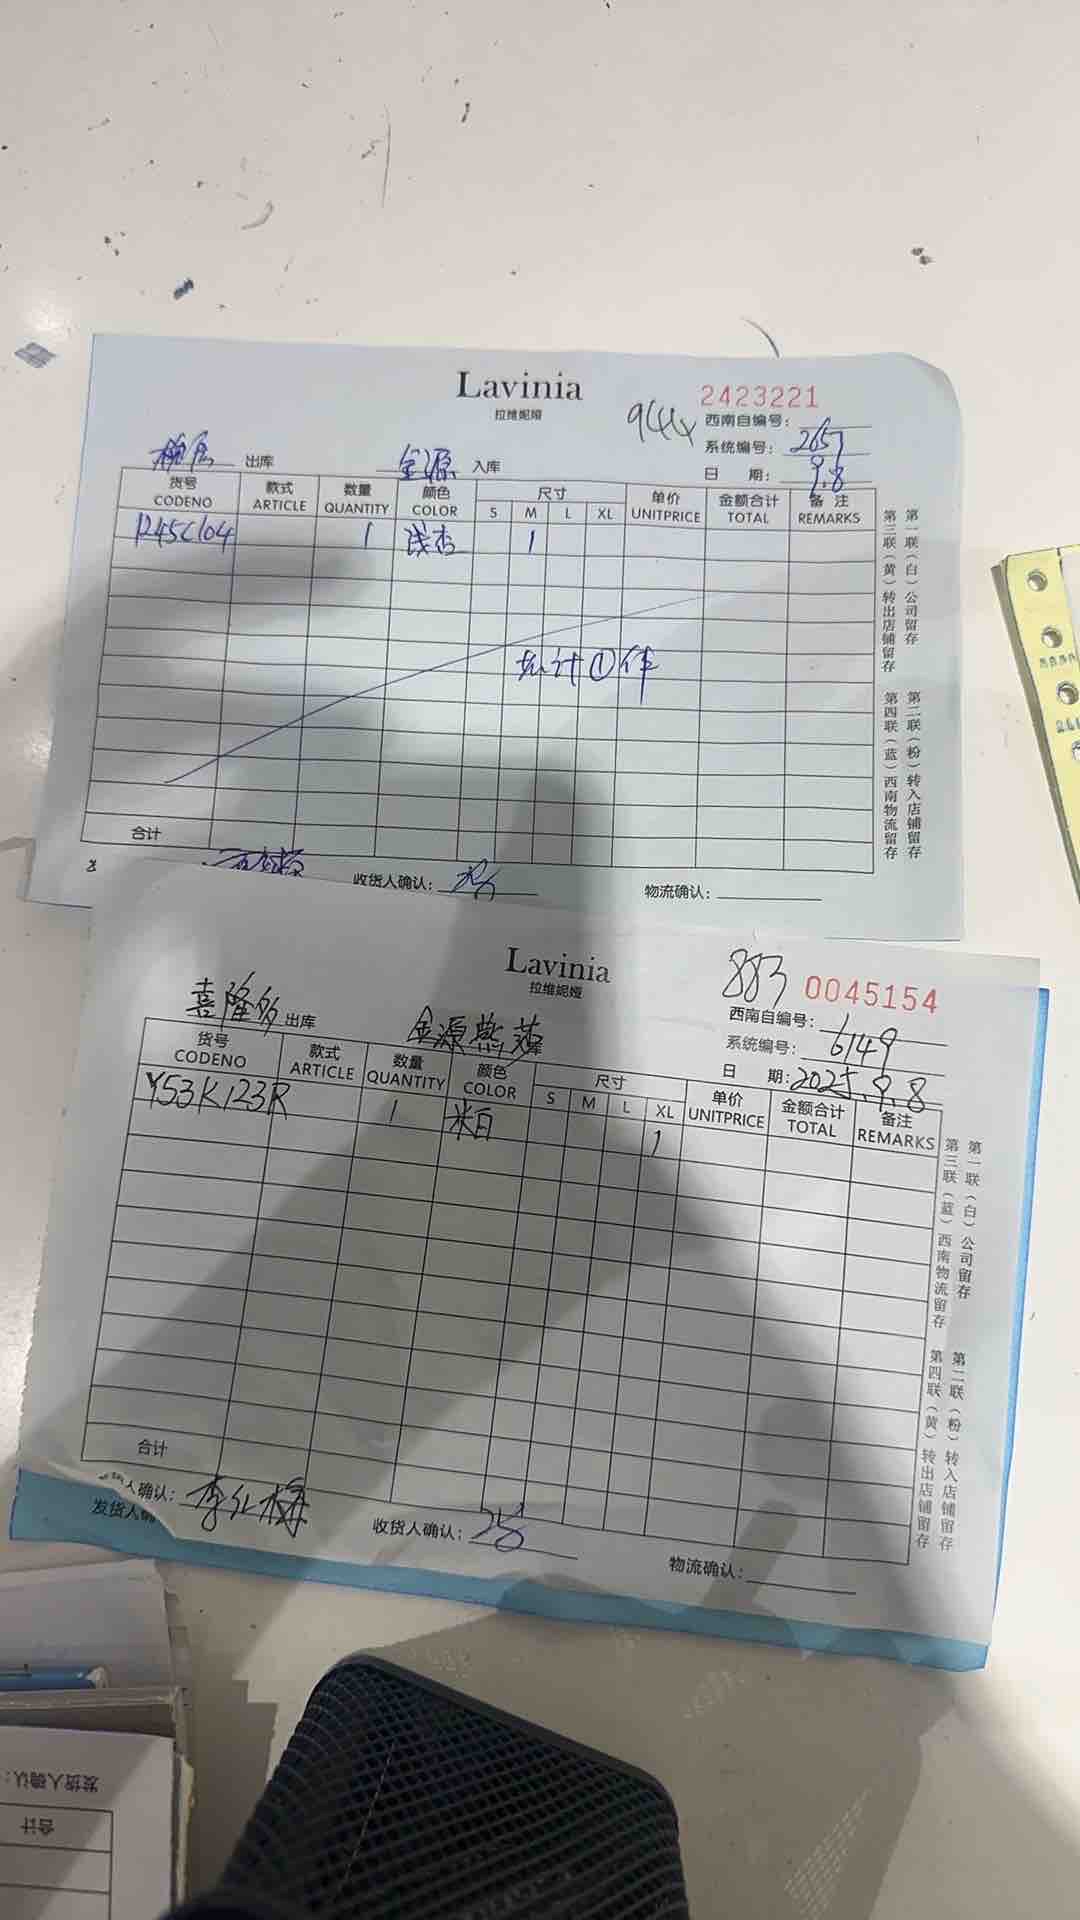 Lavinia
拉维妮娅
2423221
西南自编号:
系统编号: 2657
日 期: 9.8
出库 金源 入库
货号 款式 数量 颜色 尺寸 单价 金额合计 备注
CODENO ARTICLE QUANTITY COLOR S M L XL UNITPRICE TOTAL REMARKS
1245C104 1 浅杏 1
共计①件
合计
收货人确认: 物流确认:
第一联(白)公司留存
第三联(黄)转出店铺留存
第二联(粉)转入店铺留存
第四联(蓝)西南物流留存
Lavinia
拉维妮娅
883 0045154
西南自编号:
系统编号: 6149
日 期: 2025.9.8
喜隆多 出库 金源燕莎
货号 款式 数量 颜色 尺寸 单价 金额合计 备注
CODENO ARTICLE QUANTITY COLOR S M L XL UNITPRICE TOTAL REMARKS
Y53K123R 1 米白 1
合计
人确认: 李红梅
发货人确
收货人确认: 物流确认:
第一联(白)公司留存
第三联(蓝)西南物流留存
第二联(粉)转入店铺留存
第四联(黄)转出店铺留存
发货人确认:
合计